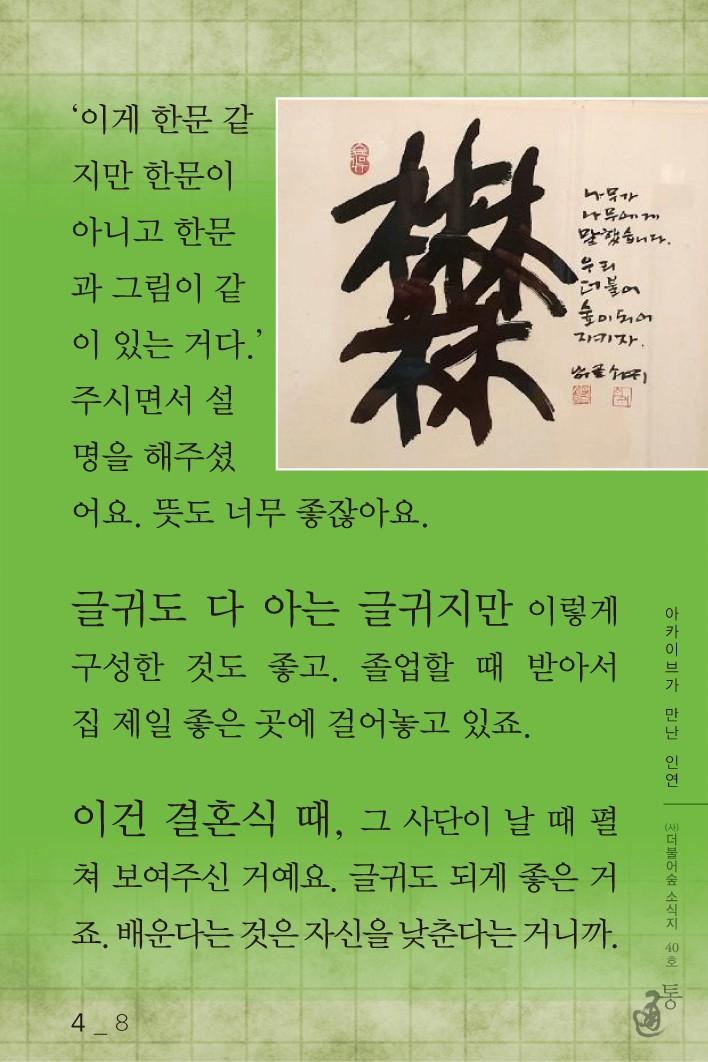 ‘이게 한문 같
지만 한문이
아니고 한문
과 그림이 같
이 있는 거다.’
주시면서 설
명을 해주셨
어요. 뜻도 너무 좋잖아요.
나무가
나무에게
말했습니다.
우리
더불어
숲이되어
지키자.
글귀도 다 아는 글귀지만 이렇게
구성한 것도 좋고. 졸업할 때 받아서
집 제일 좋은 곳에 걸어놓고 있죠.
이건 결혼식 때, 그 사단이 날 때 펼
쳐 보여주신 거예요. 글귀도 되게 좋은 거
죠. 배운다는 것은 자신을 낮춘다는 거니까.
아카이브가 만난 인연
(사)더불어숲 소식지 40호
통
4 _ 8